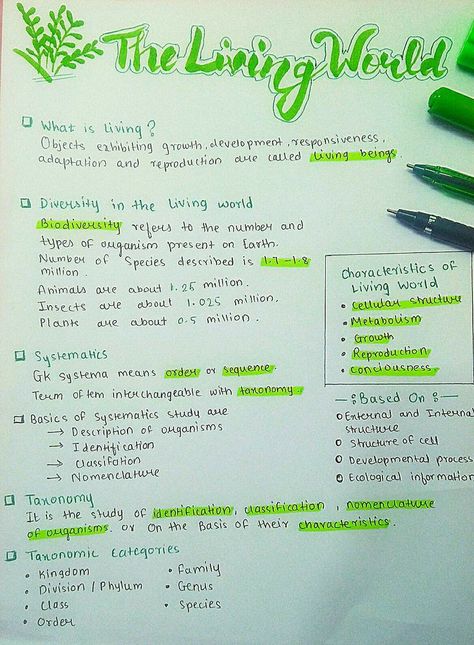 The Living World
What is living?
Objects exhibiting growth, development, responsiveness,
adaptation and reproduction are called living beings.
Diversity in the living world
Biodiversity refers to the number and
types of organism present on Earth.
Number of Species described is 1.7-1.8
million.
Animals are about 1.25 million.
Insects are about 1.025 million.
Plants are about 0.5 million.
Characteristics of
Living World
• Cellular structure
• Metabolism
• Growth
• Reproduction
• Conciousness.
Systematics
Gk systema means order or sequence.
Term oftem interchangeable with taxonomy.
Basics of Systematics study are
→ Description of organisms
→ Identification
→ Classifation
→ Nomenclature
Based On
External and Interna
structure
Structure of cell
Developmental process
Ecological information
Taxonomy
It is the study of identification, classification, nomenclature
of organisms. or On the Basis of their characteristics.
Taxonomic categories
• Kingdom
• Division / Phylum
• Class
• Order
• Family
• Genus
• Species